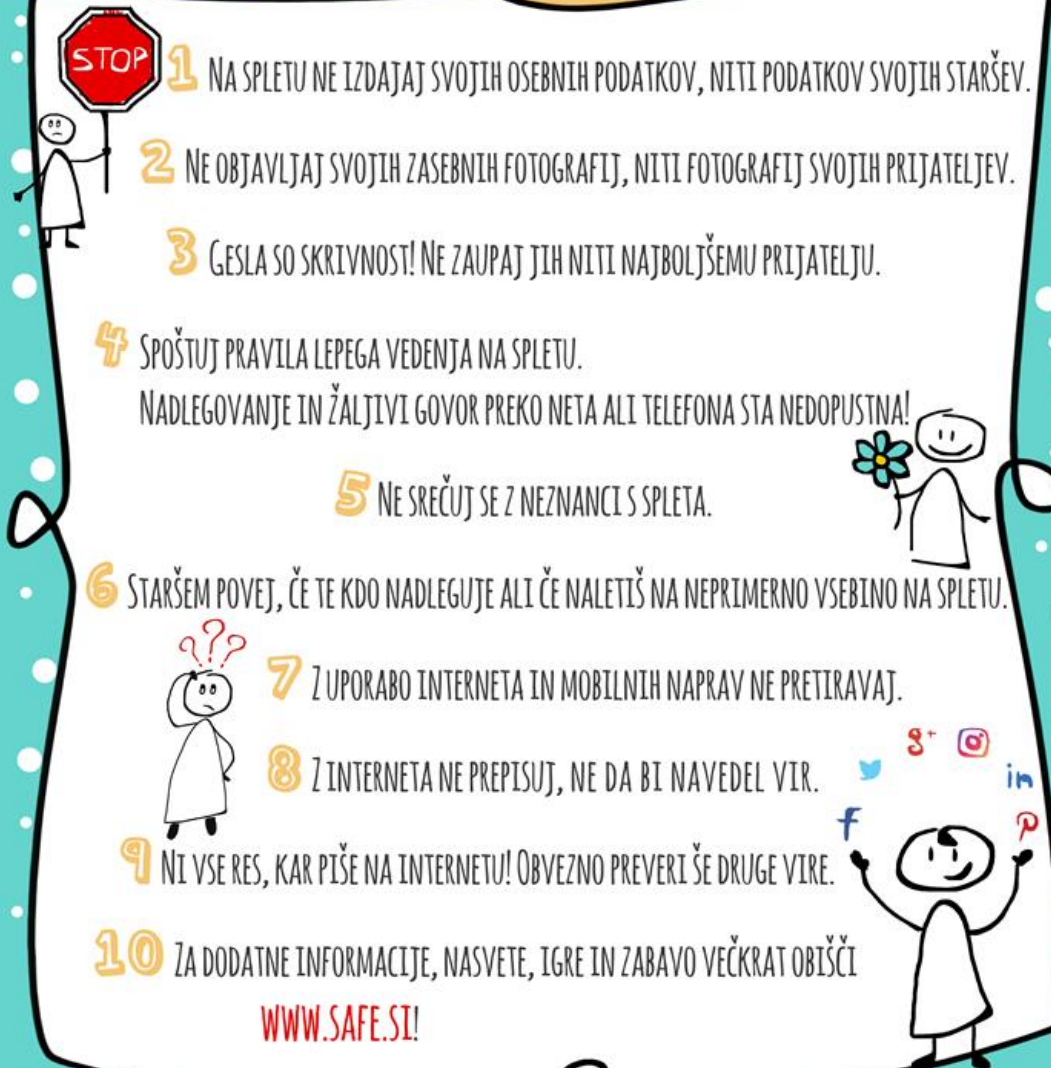 STOP
1 Na spletu ne izdajaj svojih osebnih podatkov, niti podatkov svojih staršev.
2 Ne objavljaj svojih zasebnih fotografij, niti fotografij svojih prijateljev.
3 Gesla so skrivnost! Ne zaupaj jih niti najboljšemu prijatelju.
4 Spoštuj pravila lepega vedenja na spletu.
Nadlegovanje in žaljivi govor preko neta ali telefona sta nedopustna!
5 Ne srečuj se z neznanci s spleta.
6 Staršem povej, če te kdo nadleguje ali če naletiš na neprimerno vsebino na spletu.
???
7 Z uporabo interneta in mobilnih naprav ne pretiravaj.
g+
in
8 Z interneta ne prepisuj, ne da bi navedel vir.
f
9 Ni vse res, kar piše na internetu! Obvezno preveri še druge vire.
10 Za dodatne informacije, nasvete, igre in zabavo večkrat obišči
www.safe.si!